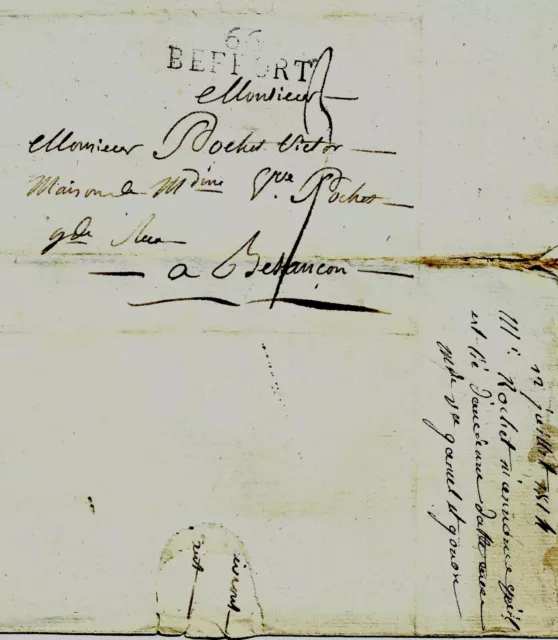 66
BEFFORT
Monsieur
Monsieur Rochet Victor
Maison de Mdme Vve Rochet
gde Rue
a Besançon
12 juillet 1814
Mr Rochet m'annonce qu'il
est lié d'ancienne datte avec
Mde vve et